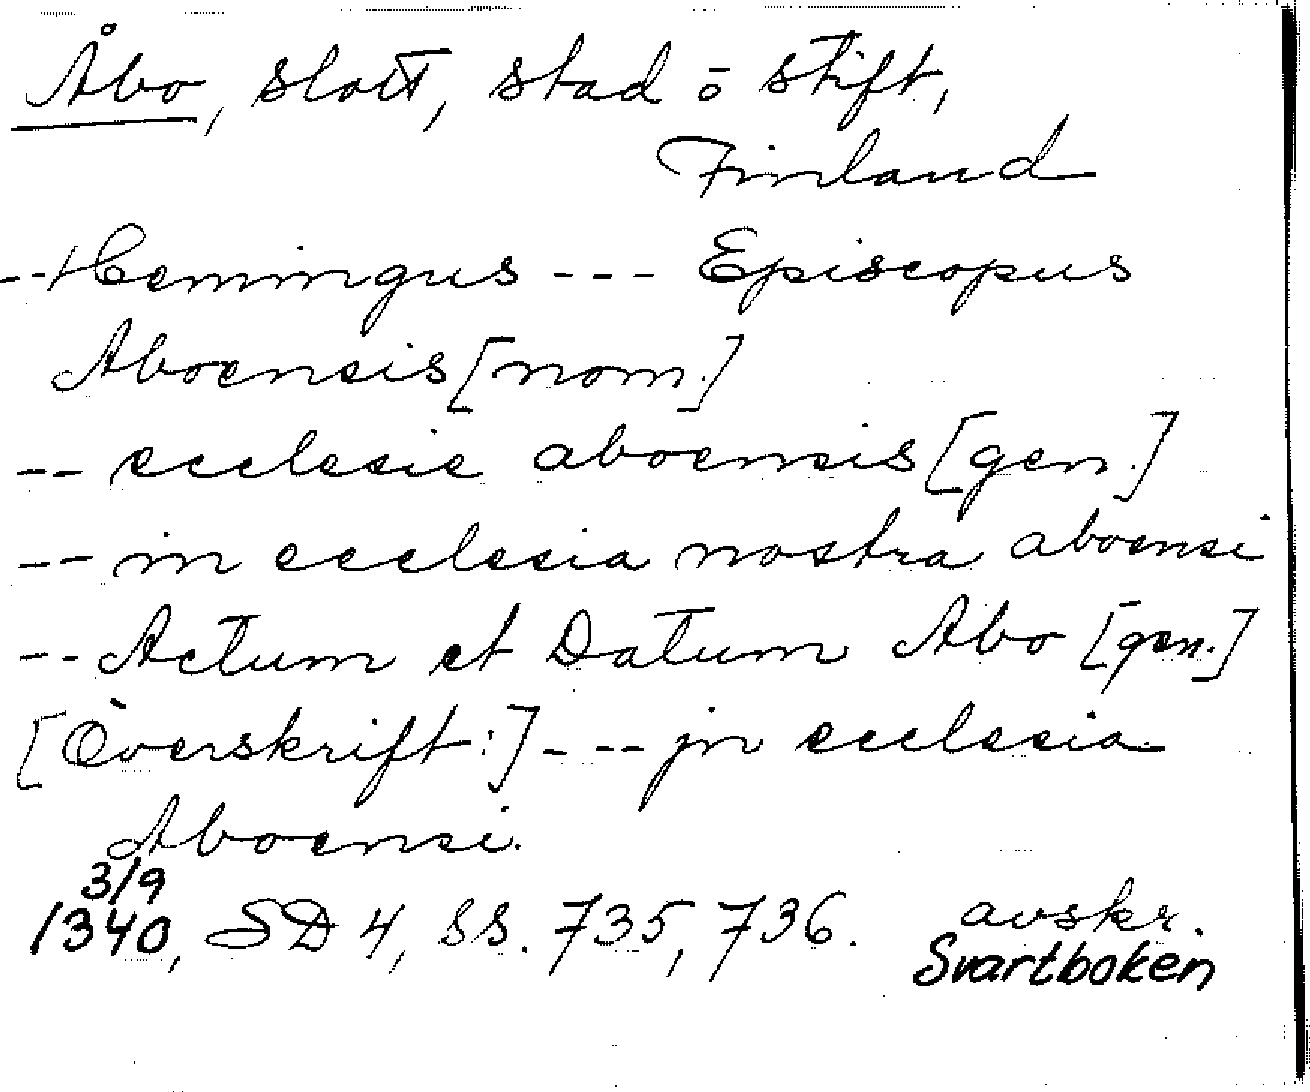 Åbo, slott, stad o stift,
Finland
-- Hemmingus --- Episcopus
Aboensis [nom.]
-- ecclesie aboensis [gen.]
-- in ecclesia nostra aboensi
-- Actum et Datum Abo [gen.]
[Överskrift:] --- jn ecclesia
Aboensi.
3/9
1340, SD 4, ss. 735, 736. avskr.
Svartboken